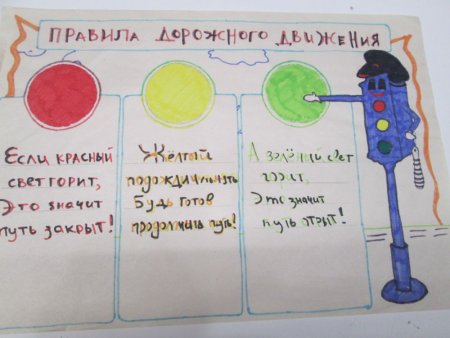 ПРАВИЛА ДОРОЖНОГО ДВИЖЕНИЯ
Если красный
свет горит,
Это значит
путь закрыт!
Жёлтый
подожди чи-нуть
Будь готов
продолжить путь!
А зелёный свет
горит,
Это значит
путь отрыт!